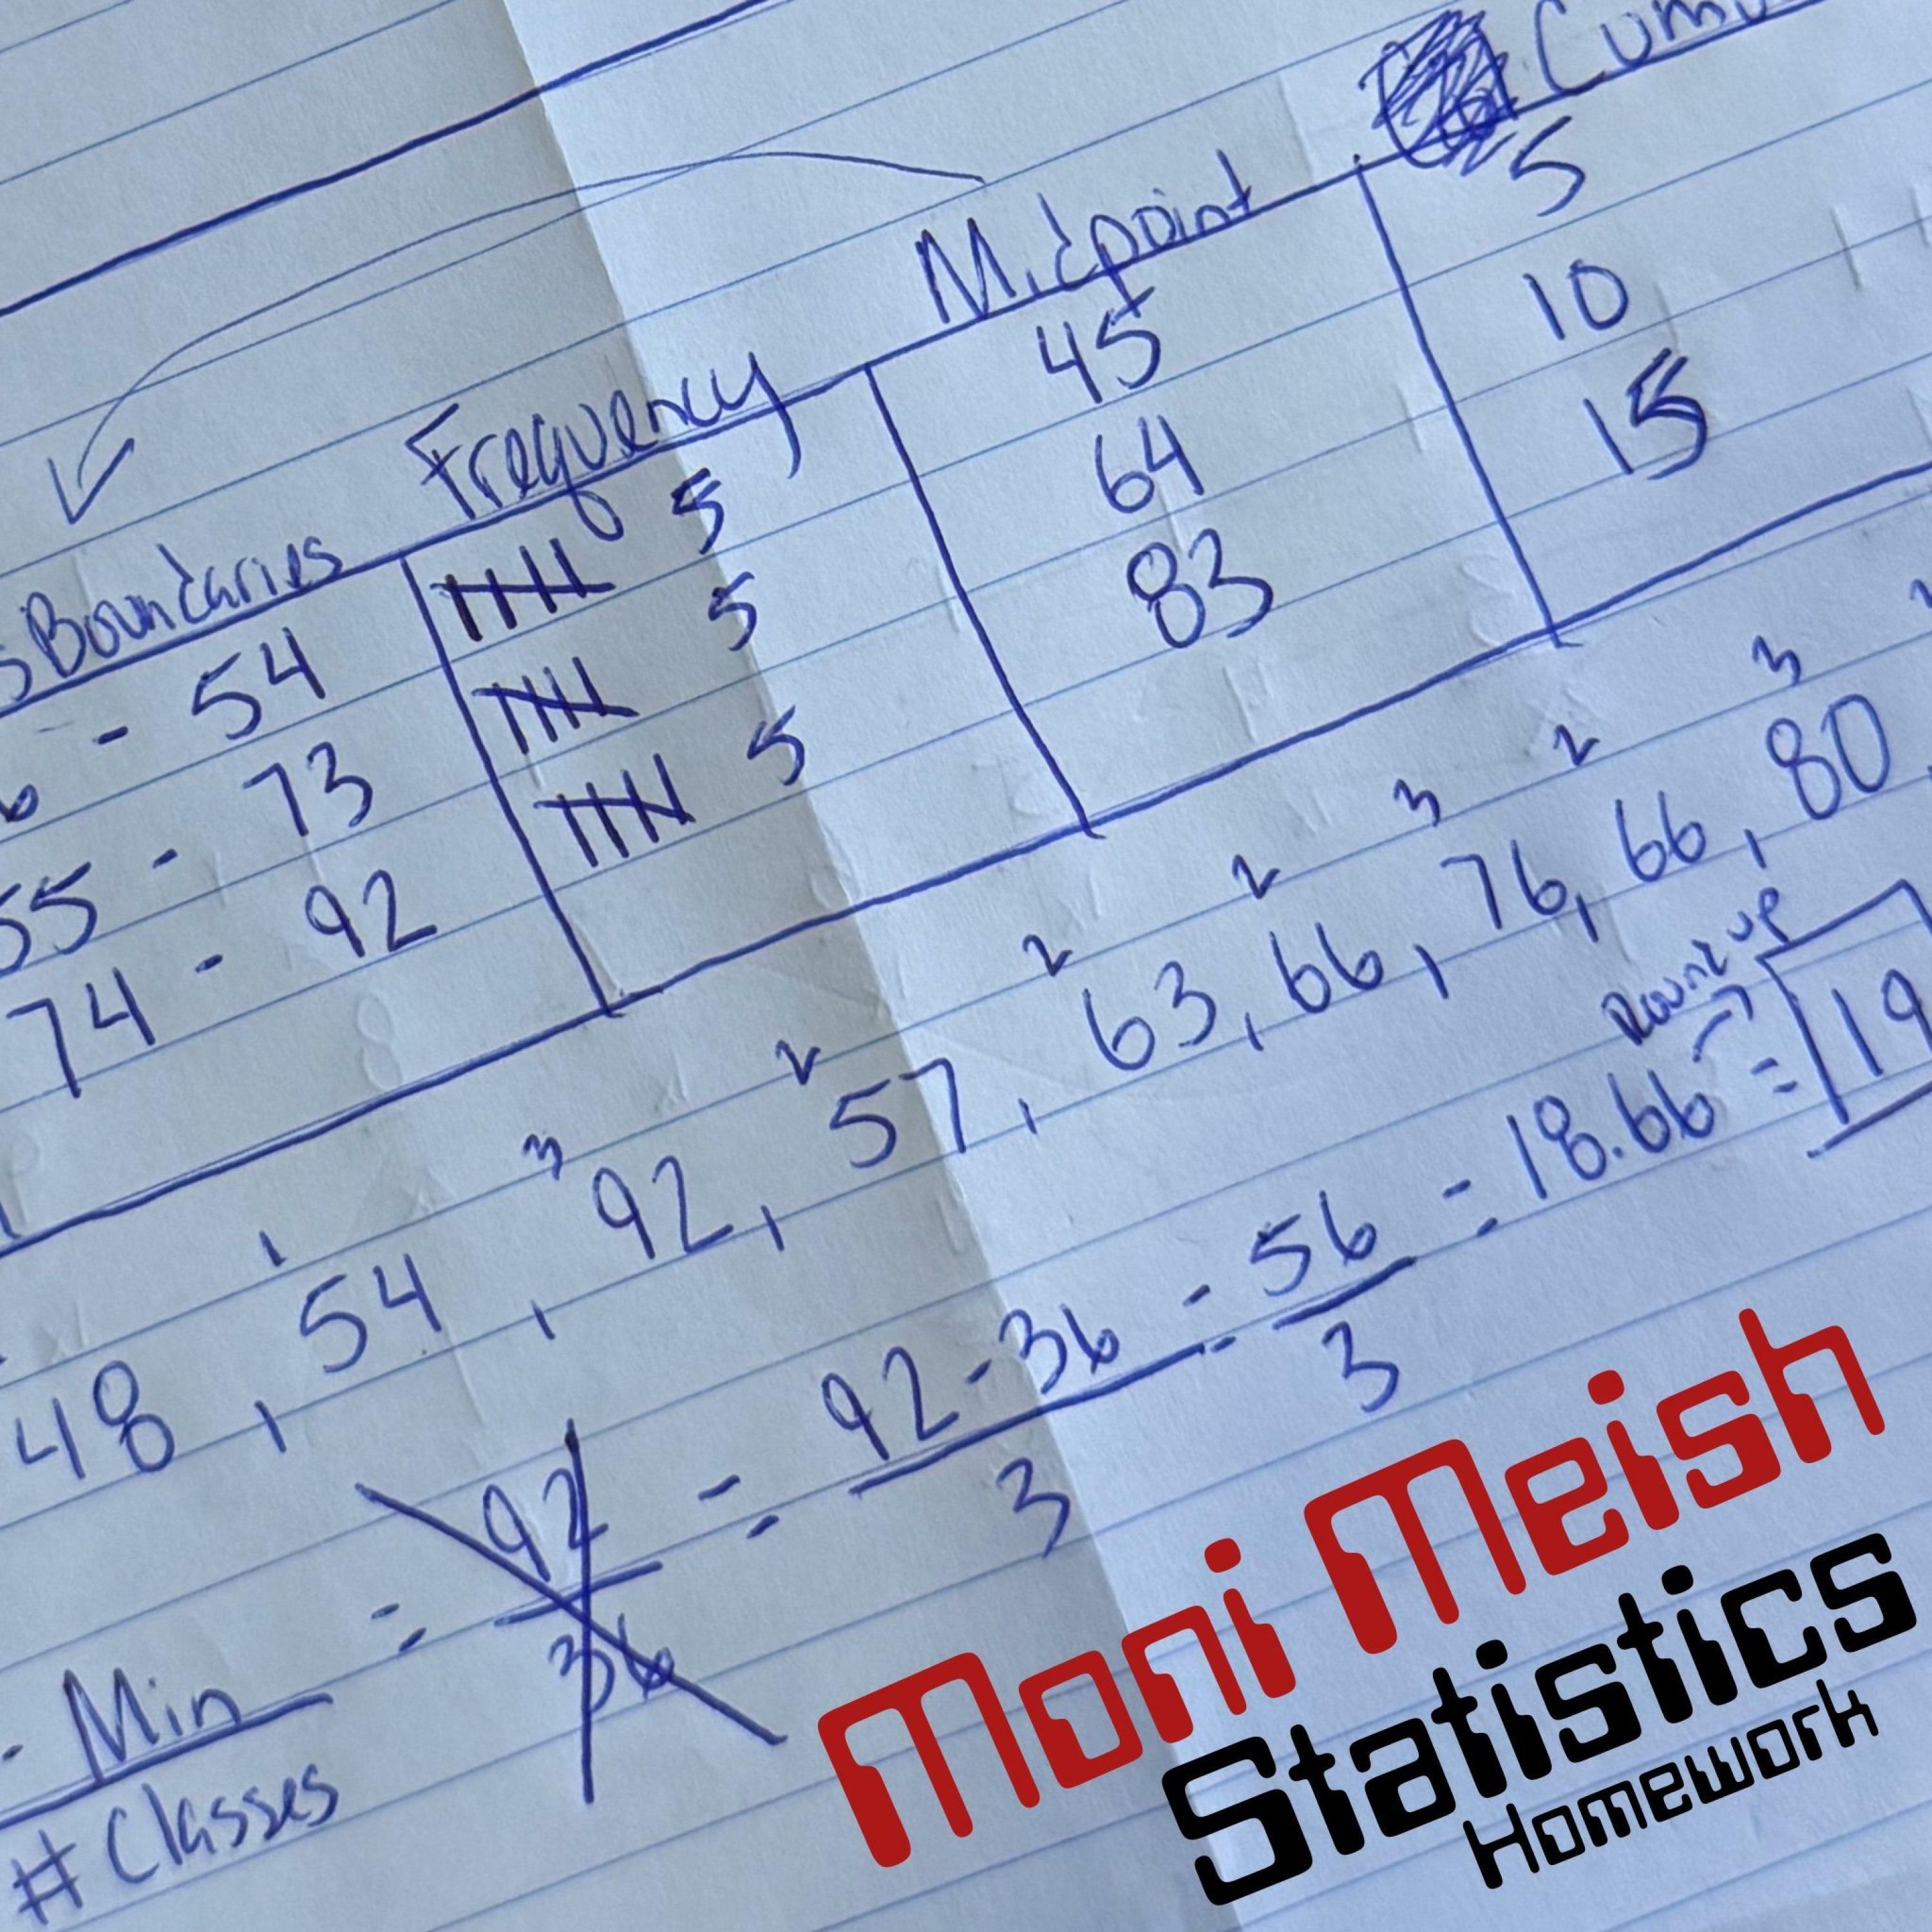 Cumu
s Boundaries Frequency Midpoint
6 - 54 5 45 5
55 - 73 5 64 10
74 - 92 5 83 15
1 3 2 2 2 3 2 3
48, 54, 92, 57, 63, 66, 76, 66, 80
Round up
- Min = 92 = 92-36 = 56 = 18.66 = 19
# Classes 36 3 3
Moni Meish
Statistics
Homework